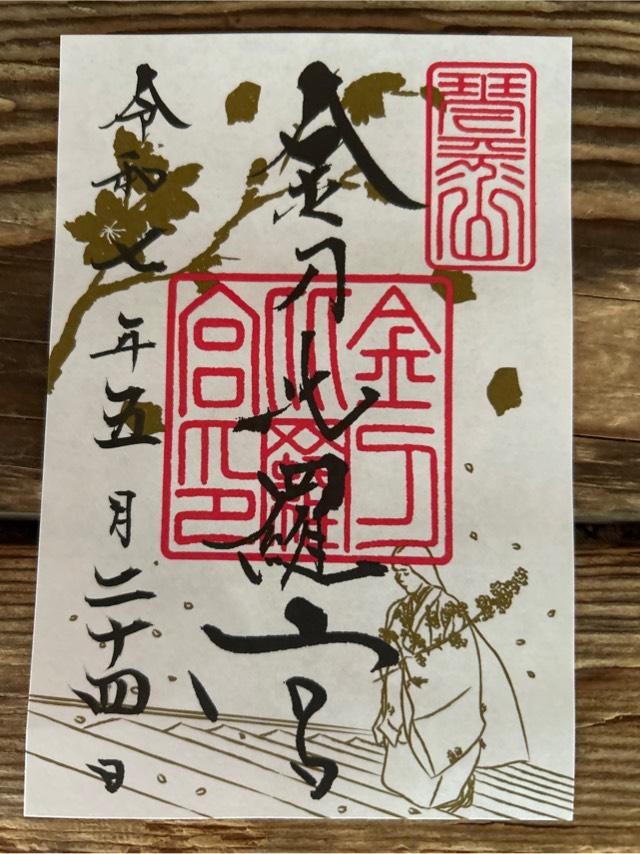 琴平山
金刀比羅宮
金刀
比羅
宮印
令和七年五月二十四日